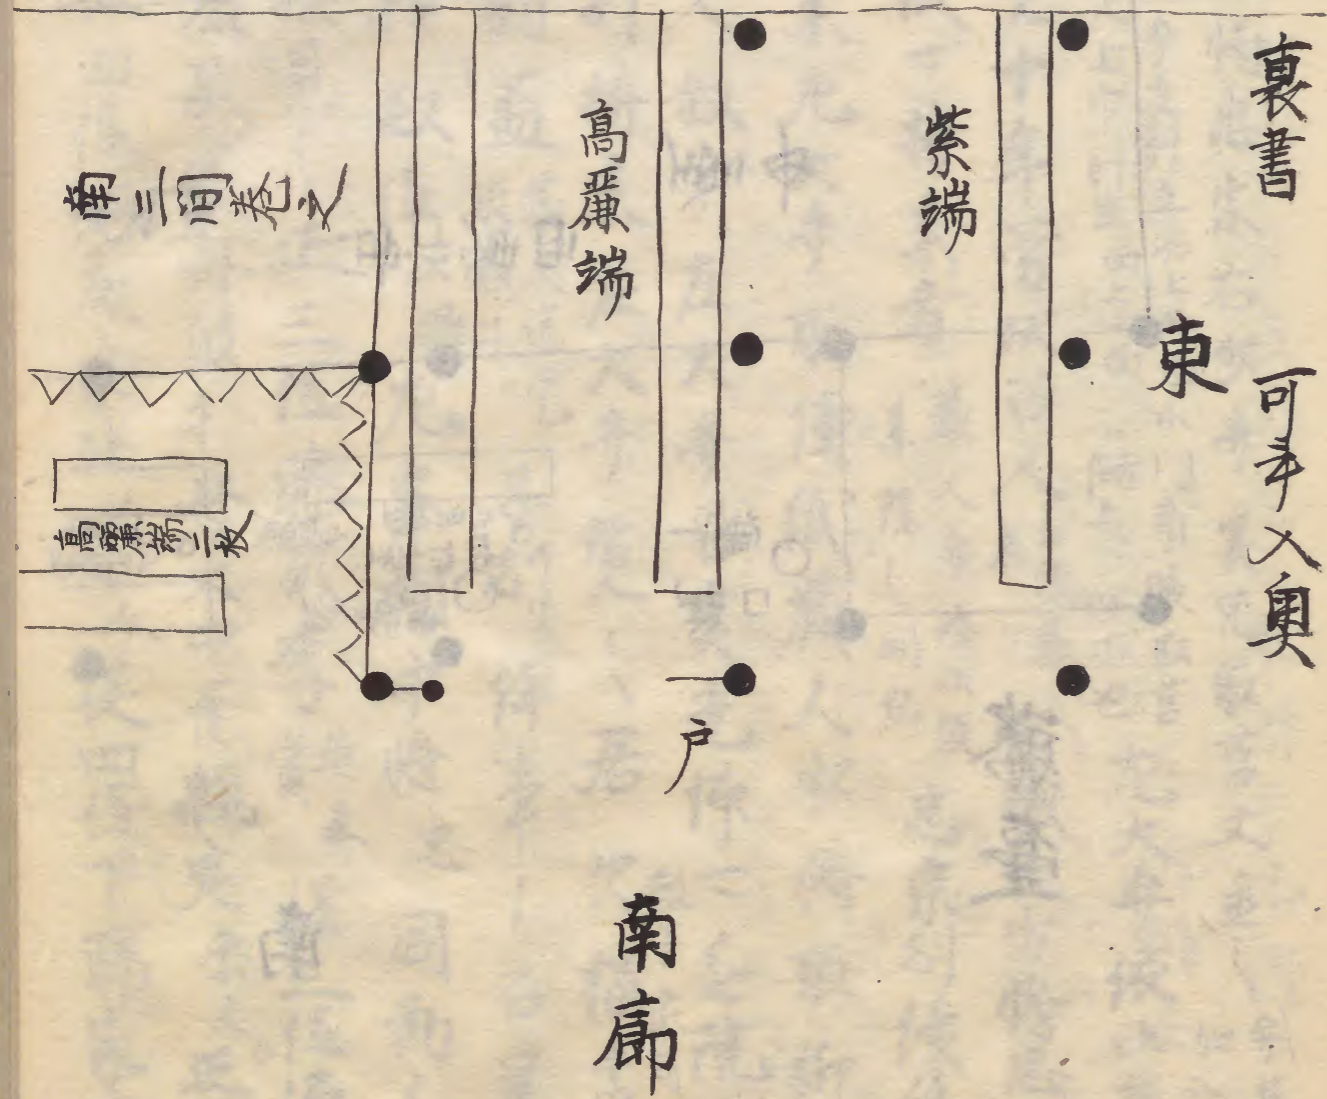 裏書
可手入奥
東
紫端
高麗端
戸
南廊
南三間巻之
高麗端二枚